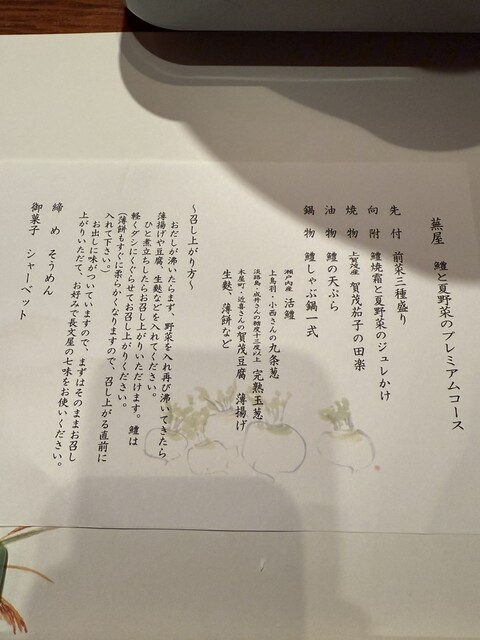 蕪屋　鱧と夏野菜のプレミアムコース
先　付　前菜三種盛り
向　附　鱧焼霜と夏野菜のジュレかけ
焼　物　上賀茂産 賀茂茄子の田楽
油　物　鱧の天ぷら
鍋　物　鱧しゃぶ鍋一式
瀬戸内産　活鱧
上鳥羽・小西さんの九条葱
淡路島・成井さんの糖度十三度以上　完熟玉葱
木屋町・近喜さんの賀茂豆腐　薄揚げ
生麩、薄餅など
～召し上がり方～
おだしが沸いたらまず、野菜を入れ再び沸いてきたら
薄揚げや豆腐、生麩などを入れてください。
ひと煮立ちしたらお召し上がりいただけます。　鱧は
軽くダシにくぐらせてお召し上がりください。
(薄餅もすぐに柔らかくなりますので、召し上がる直前に
入れて下さい。)
お出しに味がついていますので、まずはそのままお召し
上がりいただて、お好みで長文屋の七味をお使いください。
締　め　そうめん
御菓子　シャーベット